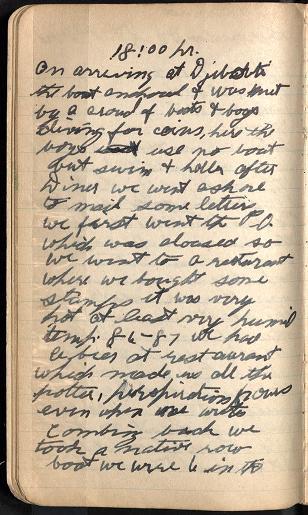 18:00 hr.
On arriving at Djibouti
the boat anchored & was met
by a crowd of boats & boys
diving for coins, here the
boys use no boat
but swim & holler after
diner we went ashore
to mail some letters
we first went the P.O.
which was aloased so
we went to a resturant
where we bought some
stamps it was very
hot at least very humid
temp. 86-87 we had
a beer at resturant
which made us all the
hotter, perspiration
even when we
Combing back we
took a native row
boat we were 6 in the